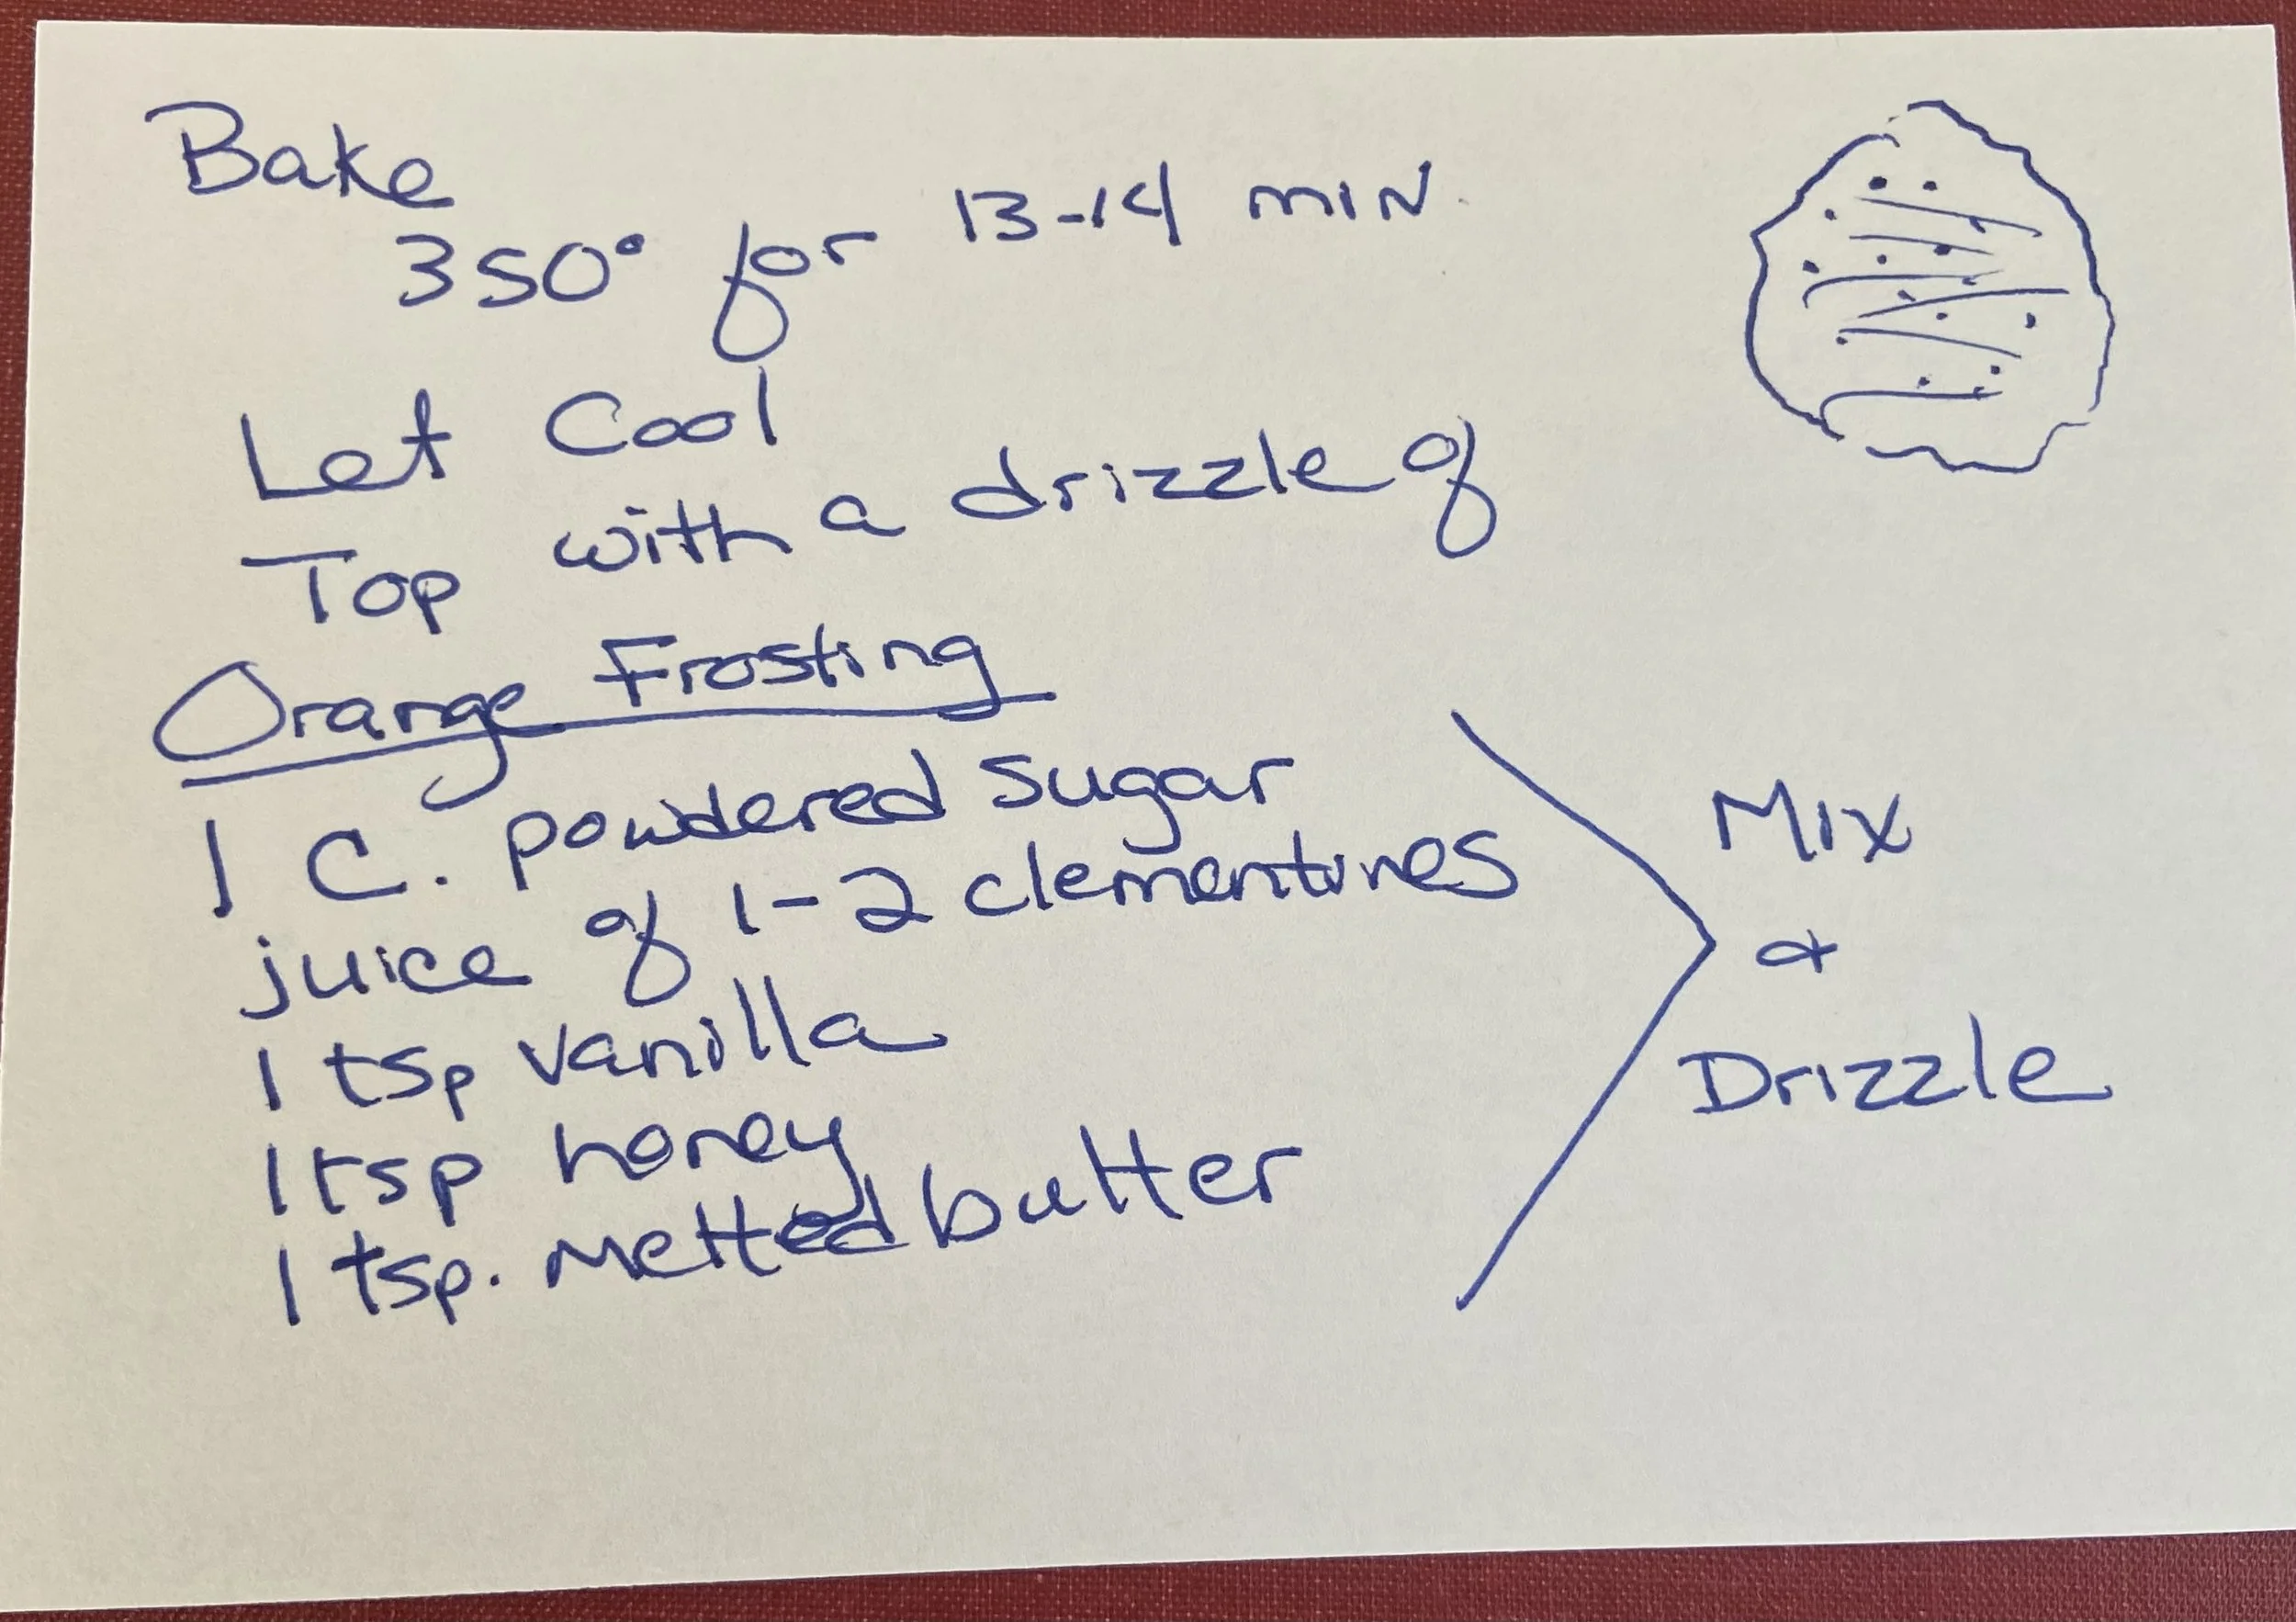 Bake
350° for 13-14 min.
Let Cool
Top with a drizzle of
Orange Frosting
1 C. powdered sugar
juice of 1-2 clementines
1 tsp vanilla
1 tsp honey
1 tsp. melted butter
Mix
&
Drizzle